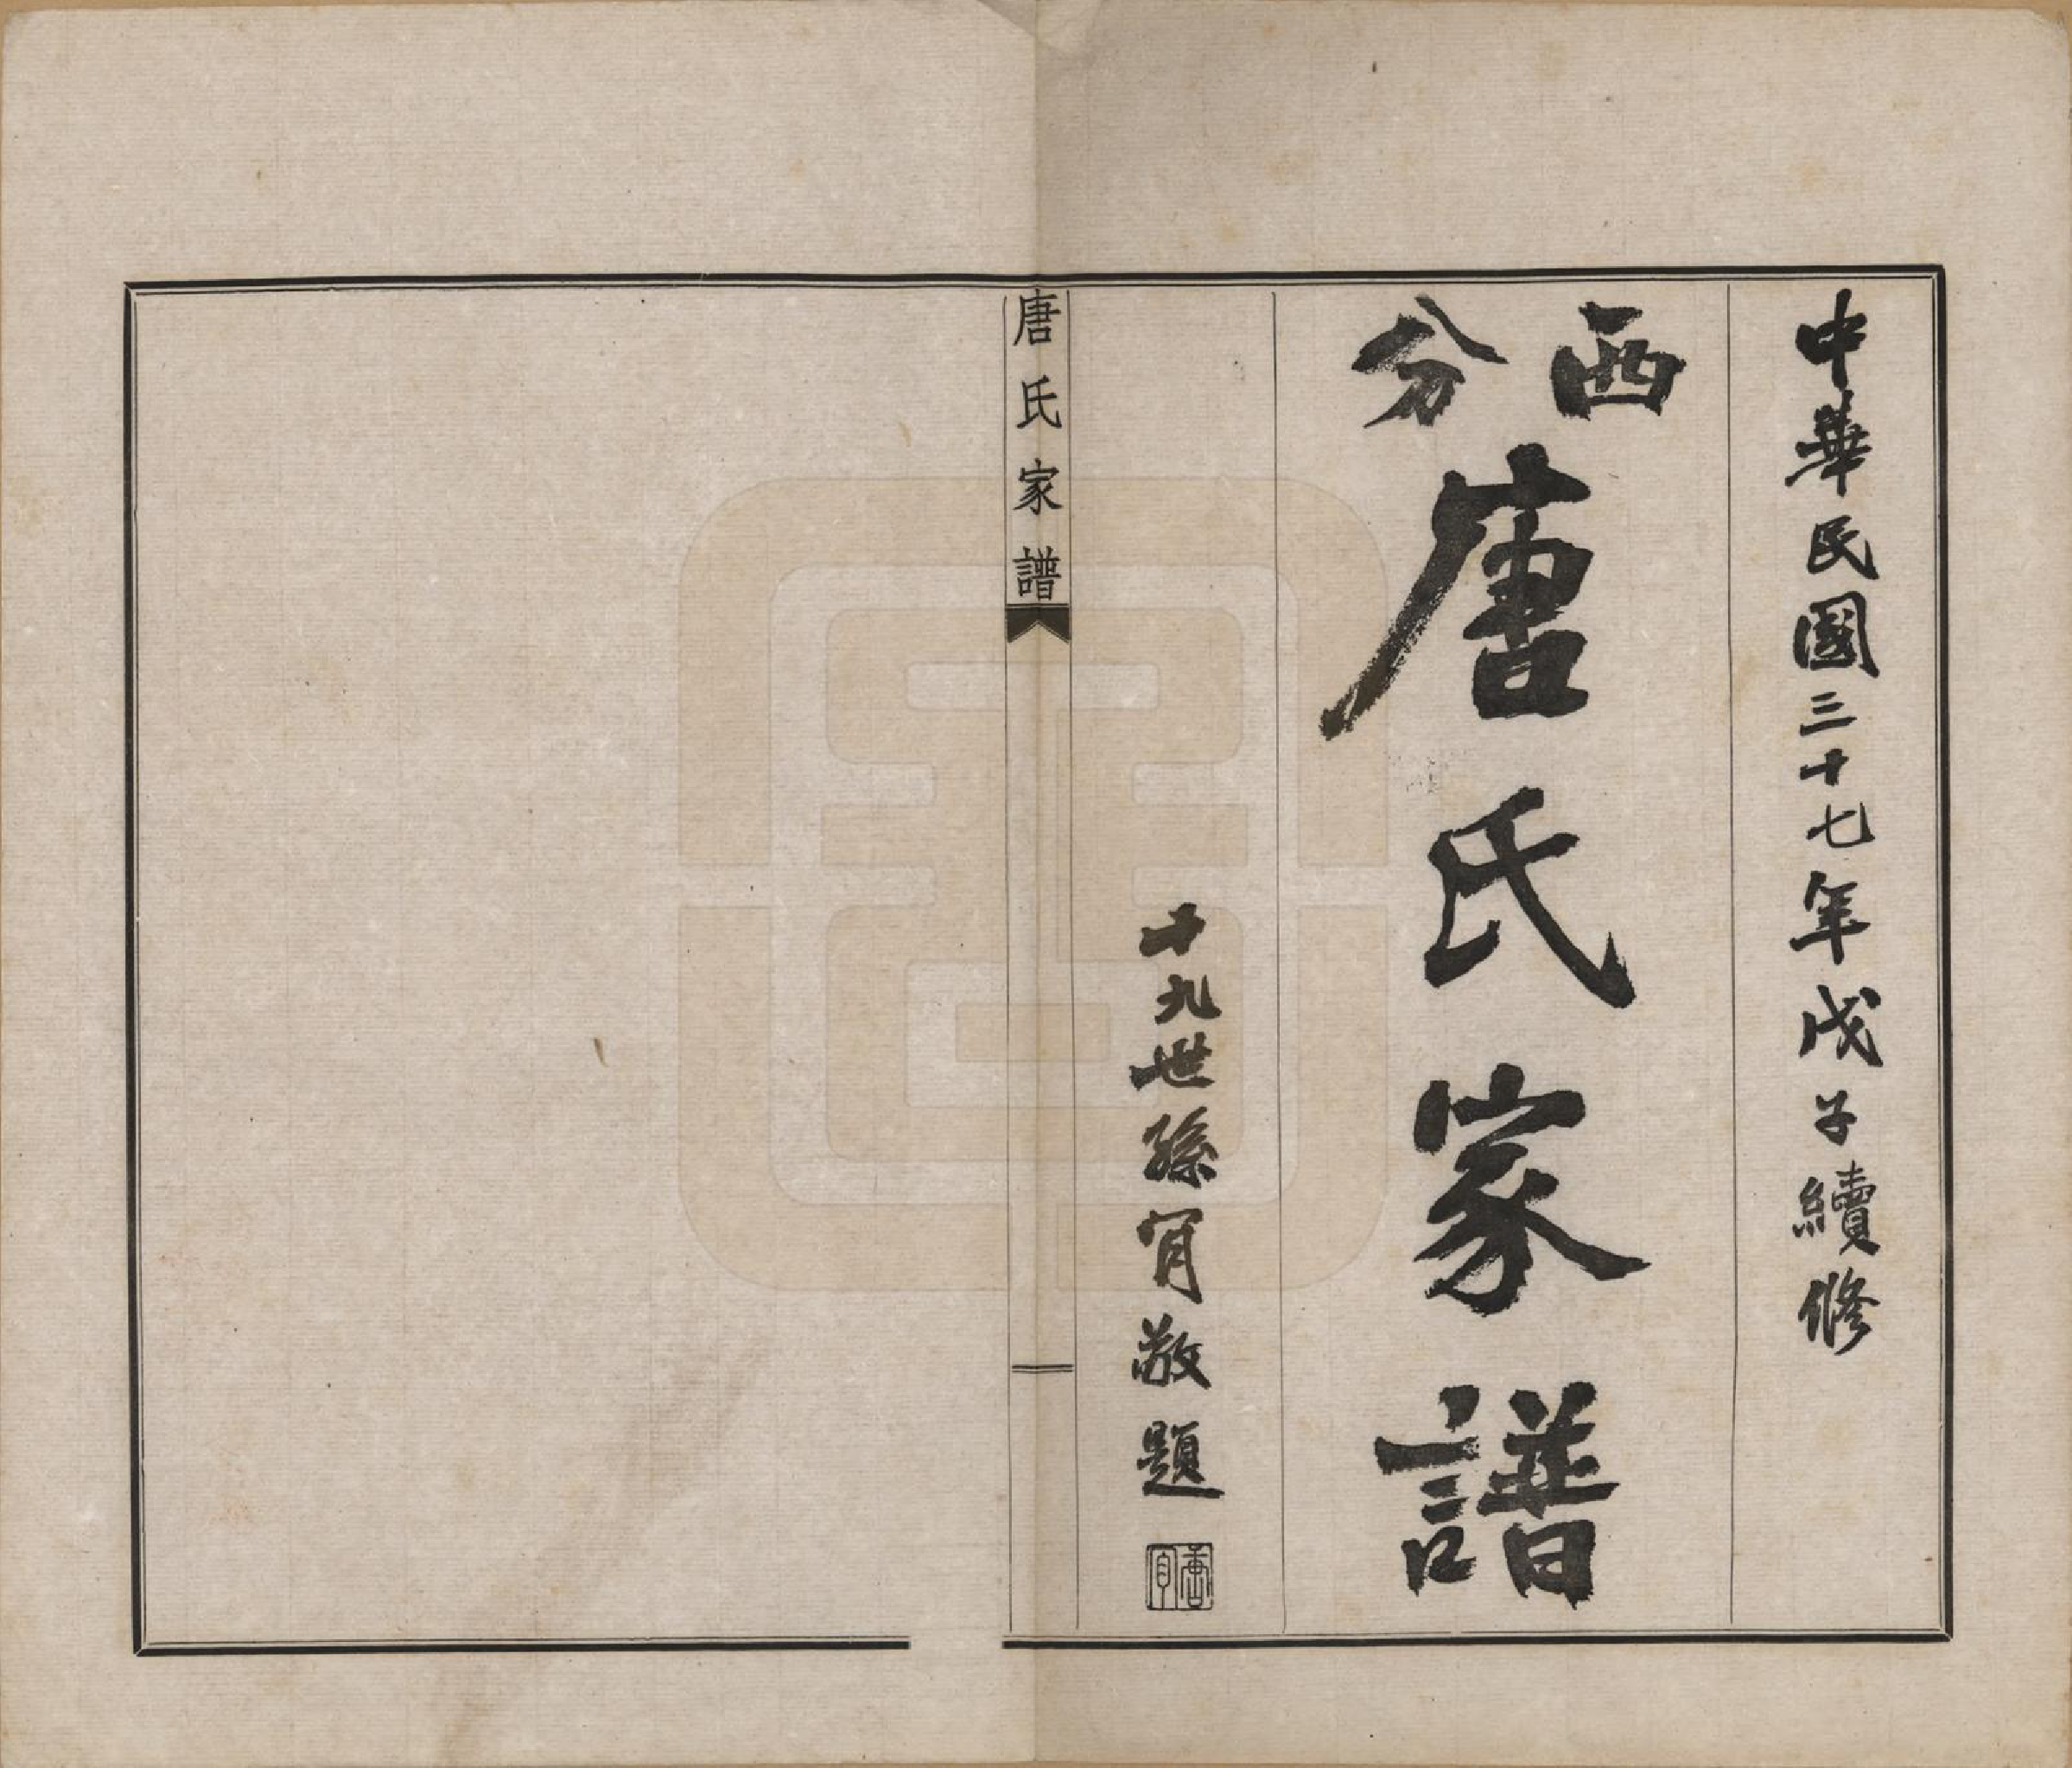 中華民國三十七年戊子續修
西分
唐氏家譜
十九世孫肎敬題
唐肎
唐氏家譜
一